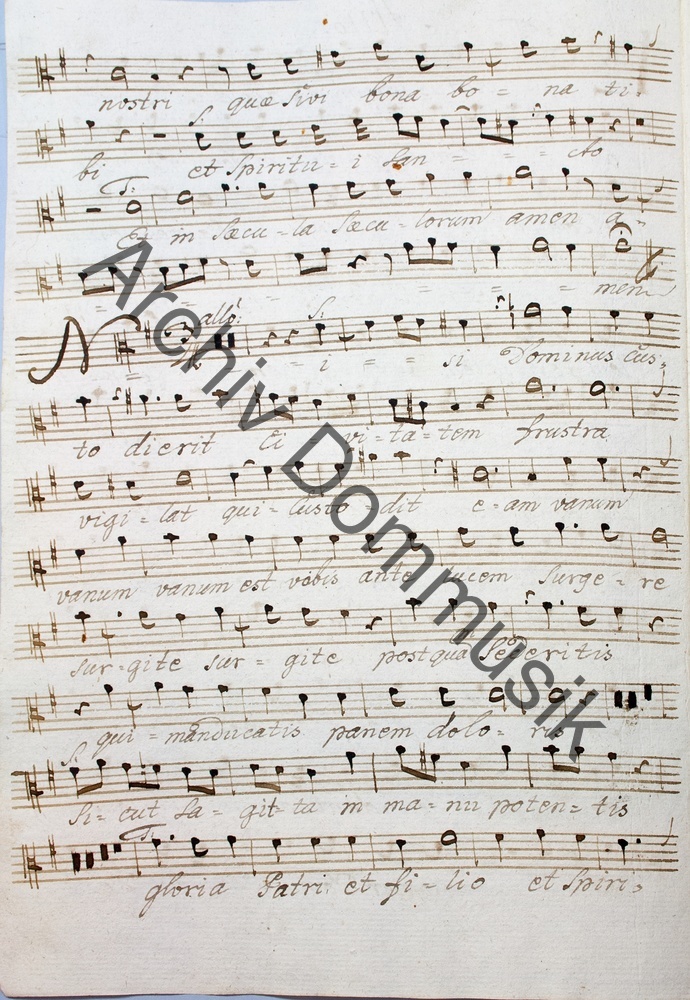 nostri quæ sivi bona bo = na ti =
S
bi et Spiritu = i San = = = cto
T.
Et in Sæcu = la Sæcu = lorum amen a =
= = = = = = = men
allo: S.
Ni = i = = si Dominus cus =
to dierit Ci = vi = ta = tem frustra
vigi = lat qui = Custo = dit e = am vanum
vanum vanum est vobis ante lucem Surge = re
sur = gite sur = gite postqua Sederitis
qui = manducatis panem dolo = ris
S.
Si = cut Sa = git = ta in ma = nu poten = tis
T.
gloria Patri et fi = lio et Spiri =
Archiv Dommusik